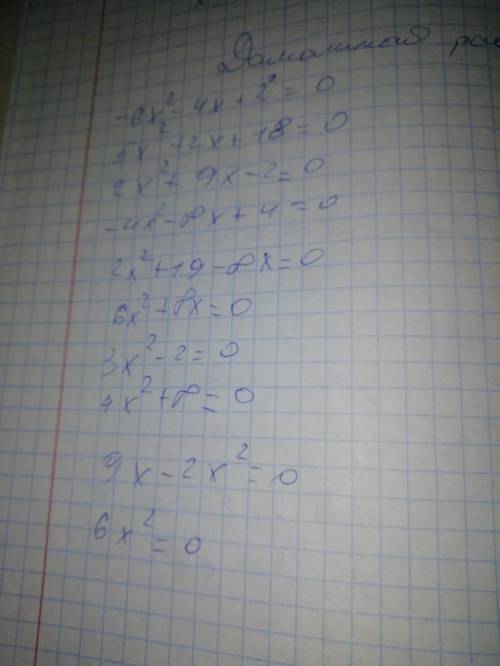 Домашняя
-6x² - 4x + 2 = 0
5x² - 2x + 18 = 0
2x² + 9x - 2 = 0
-4x² - 8x + 4 = 0
2x² + 19 - 8x = 0
6x² + 8x = 0
3x² - 2 = 0
4x² + 8 = 0
9x - 2x² = 0
6x² = 0